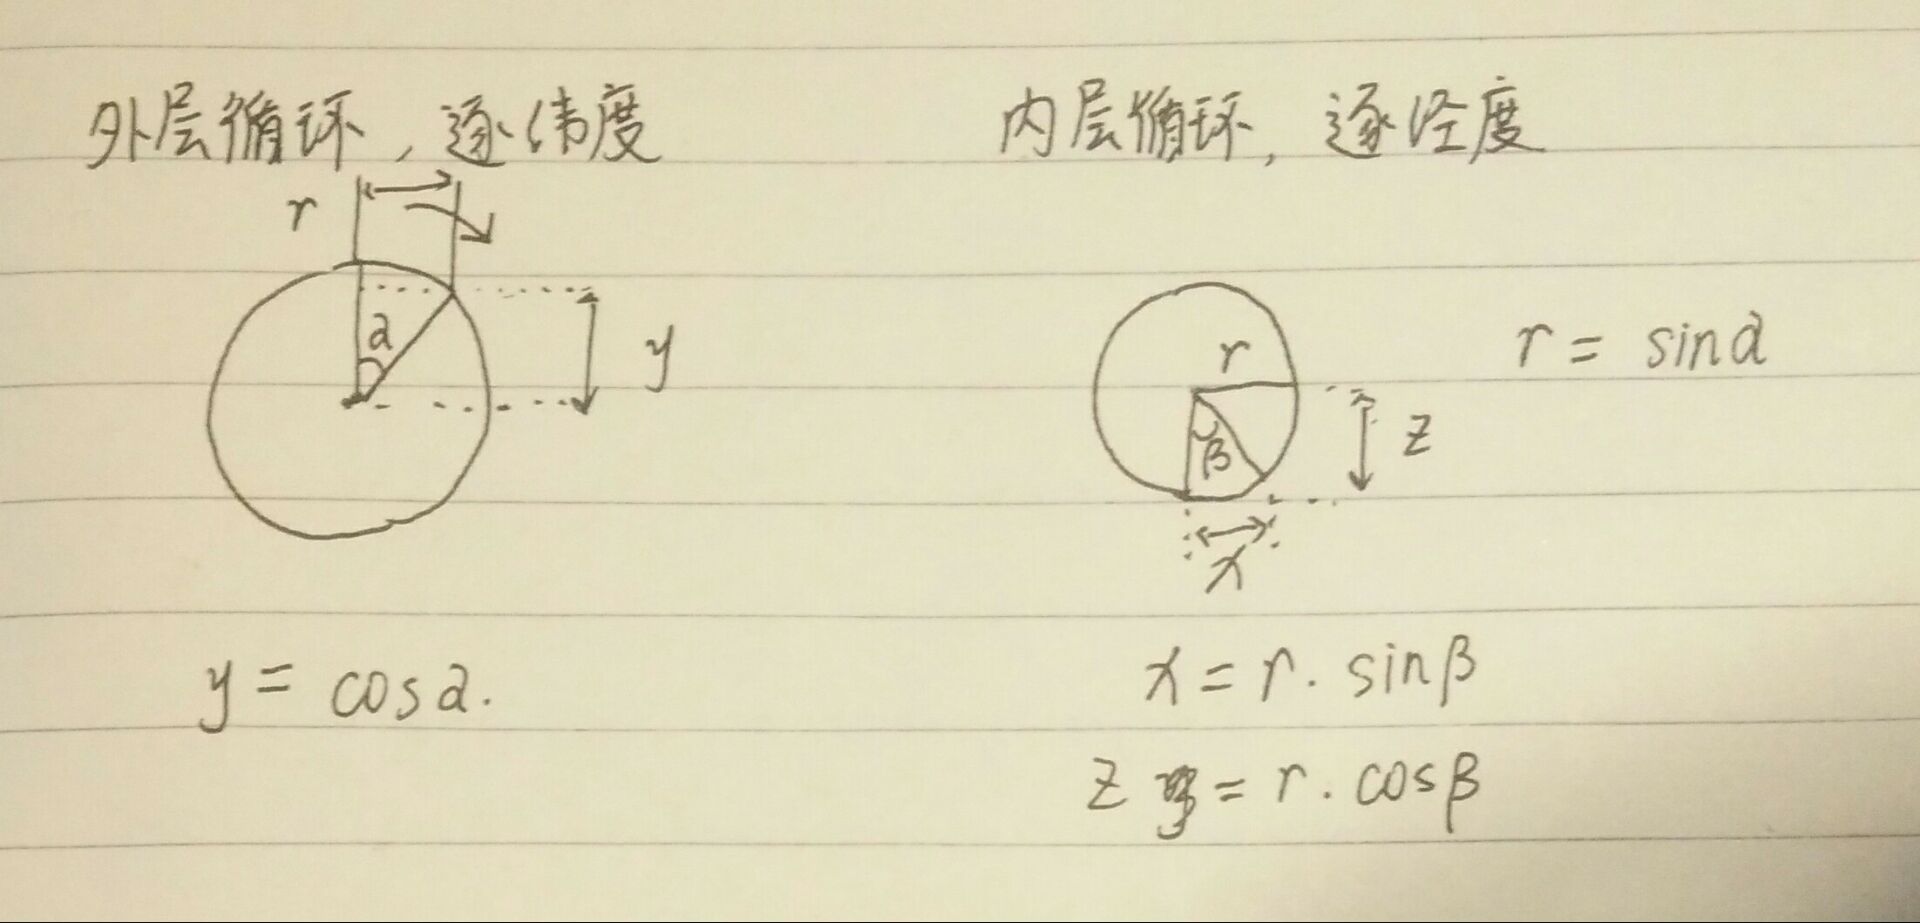 外层循环，逐纬度
内层循环，逐经度
r
α
y
r
β
z
x
r = sinα
y = cosα.
x = r. sinβ
z = r. cosβ